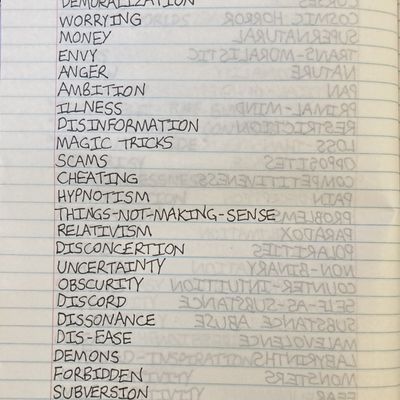 DEMORALIZATION
WORRYING
MONEY
ENVY
ANGER
AMBITION
ILLNESS
DISINFORMATION
MAGIC TRICKS
SCAMS
CHEATING
HYPNOTISM
THINGS-NOT-MAKING-SENSE
RELATIVISM
DISCONCERTION
UNCERTAINTY
OBSCURITY
DISCORD
DISSONANCE
DIS-EASE
DEMONS
FORBIDDEN
SUBVERSION